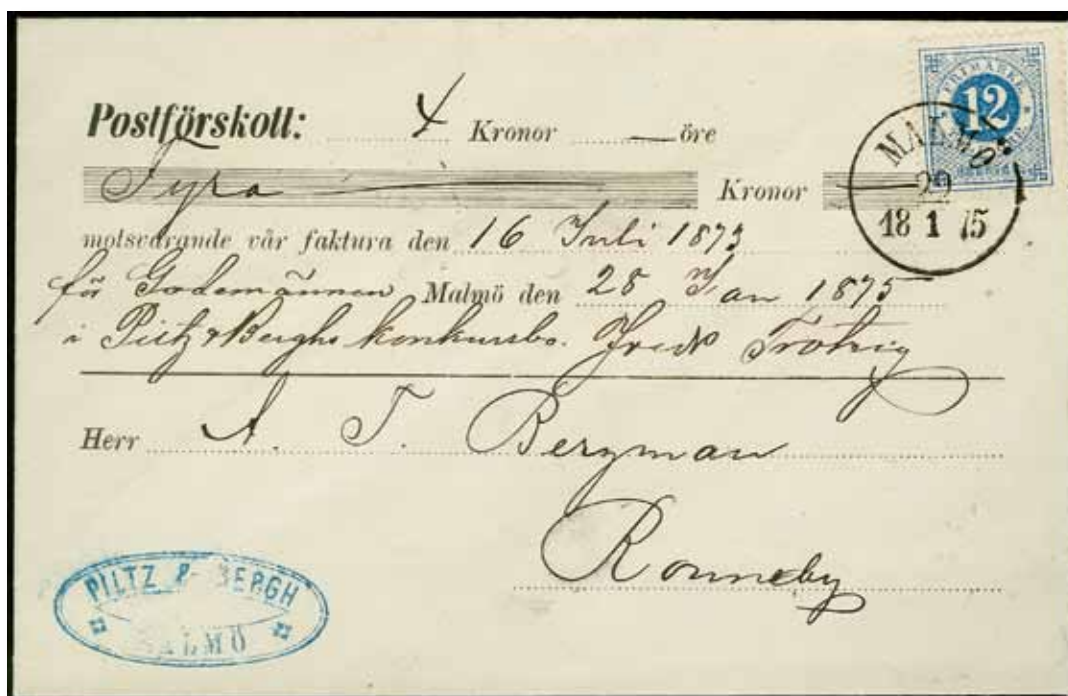 Postförskott: 4 Kronor — öre
Fyra — Kronor —
motsvarande vår faktura den 16 Juli 1873
för Godemännen Malmö den 28 Jan 1875
i Piltz & Berghs konkursbo. Fredr Trotzig
Herr A. T. Bergman
Ronneby
FRIMÄRKE
12
MALMÖ
29
18 1 75
PILTZ & BERGH
MALMÖ